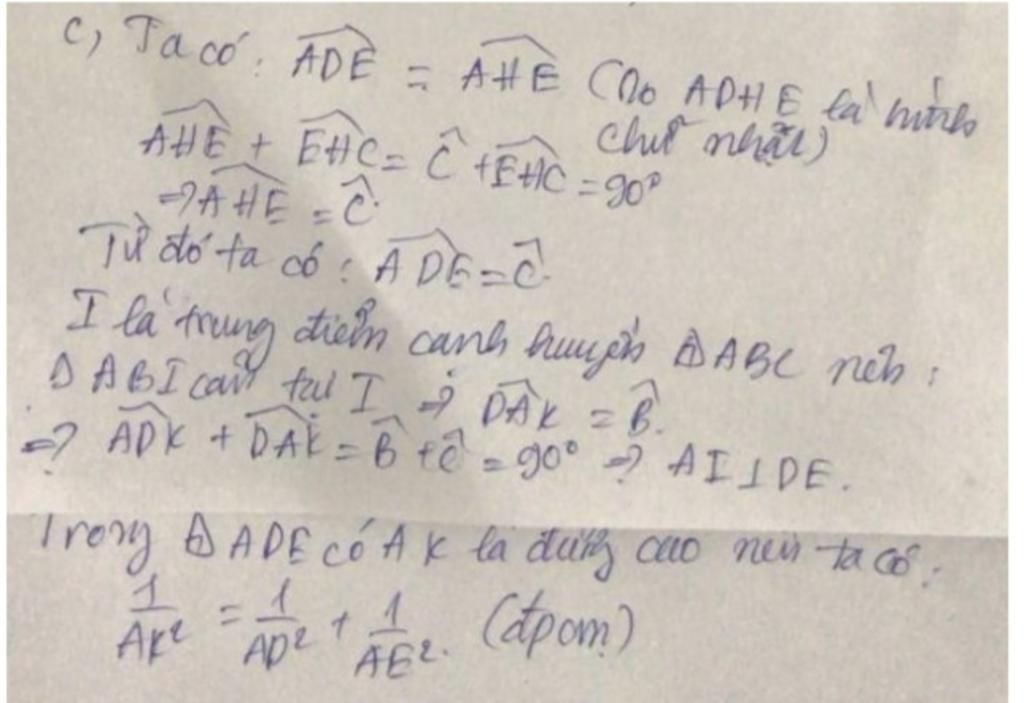 c, Ta có: ADE = AHE (Do ADHE là hình
chữ nhật)
AHE + EHC = Ĉ + EHC = 90°
=> AHE = Ĉ.
Từ đó ta có: ADE = Ĉ.
I là trung điểm cạnh huyền ΔABC nên:
Δ ABI cân tại I => DAK = B̂.
=> ADK + DAK = B̂ + Ĉ = 90° => AI ⊥ DE.
Trong Δ ADE có AK là đường cao nên ta có:
1/AK² = 1/AD² + 1/AE². (đpcm)